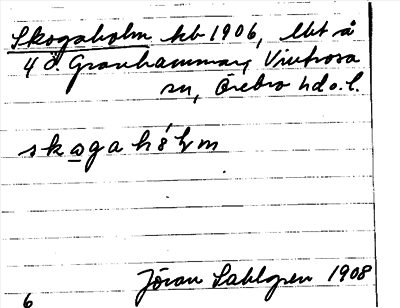 Skogaholm kb 1906, lht å
4 d. Granhammar, Vintrosa
sn, Örebro hd o. l.
skogahólm
Jöran Sahlgren 1908
6